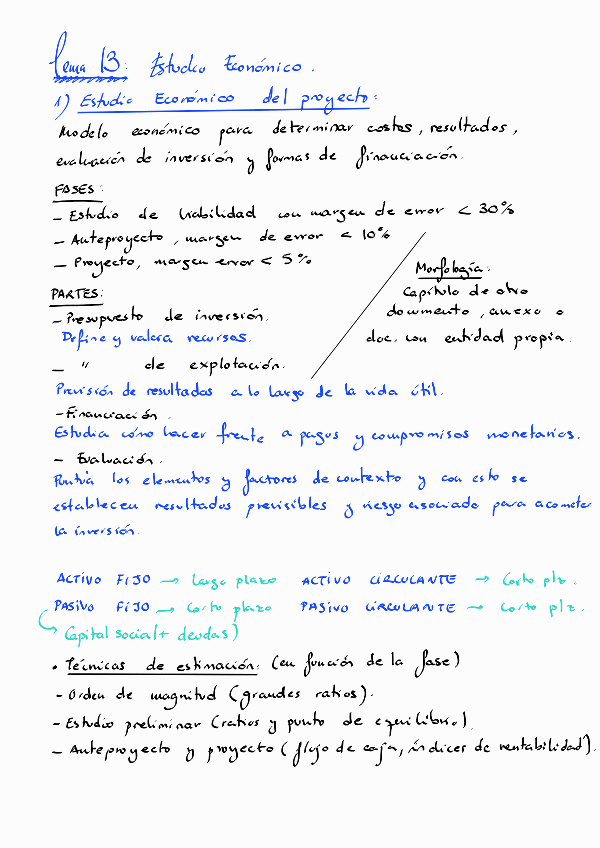 Tema 13: Estudio Económico.
1) Estudio Económico del proyecto:
Modelo económico para determinar costes, resultados,
evaluación de inversión y formas de financiación.
FASES:
- Estudio de Viabilidad con margen de error < 30%
- Anteproyecto, margen de error < 10%
- Proyecto, margen error < 5%
Morfología.
Capítulo de otro
documento, anexo o
doc. con entidad propia.
PARTES:
- Presupuesto de inversión.
Define y valora recursos.
- " de explotación.
Previsión de resultados a lo largo de la vida útil.
- Financiación.
Estudia cómo hacer frente a pagos y compromisos monetarios.
- Evaluación.
Puntúa los elementos y factores de contexto y con esto se
establecen resultados previsibles y riesgo asociado para acometer
la inversión.
ACTIVO FIJO → Largo plazo ACTIVO CIRCULANTE → Corto plz.
PASIVO FIJO → Corto plazo PASIVO CIRCULANTE → Corto plz.
→ Capital social (+ deudas)
• Técnicas de estimación: (en función de la fase)
- Orden de magnitud (grandes ratios).
- Estudio preliminar (ratios y punto de equilibrio).
- Anteproyecto y proyecto (flujo de caja, índices de rentabilidad).